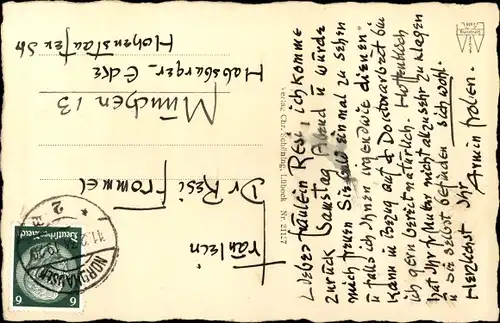 Fräulein
Dr Resi
Frommel
München 13
Habsburger-Ecke
Hohenstaufen Str
NORDHAUSEN
Deutsches Reich
6 6
Verlag Chr. Schöning, Lübeck Nr. 21127
Liebes Fräulein Resi, ich komme
zurück Samstag Abend u würde
mich freuen Sie bald einmal zu sehen
u falls ich Ihnen irgendwie dienen
kann in Bezug auf d Doktorarbeit bin
ich gern bereit natürlich. Hoffentlich
hat Ihr Mutter nicht allzu sehr zu klagen
u Sie selbst befinden sich wohl.
Herzlichst Ihr
Armin